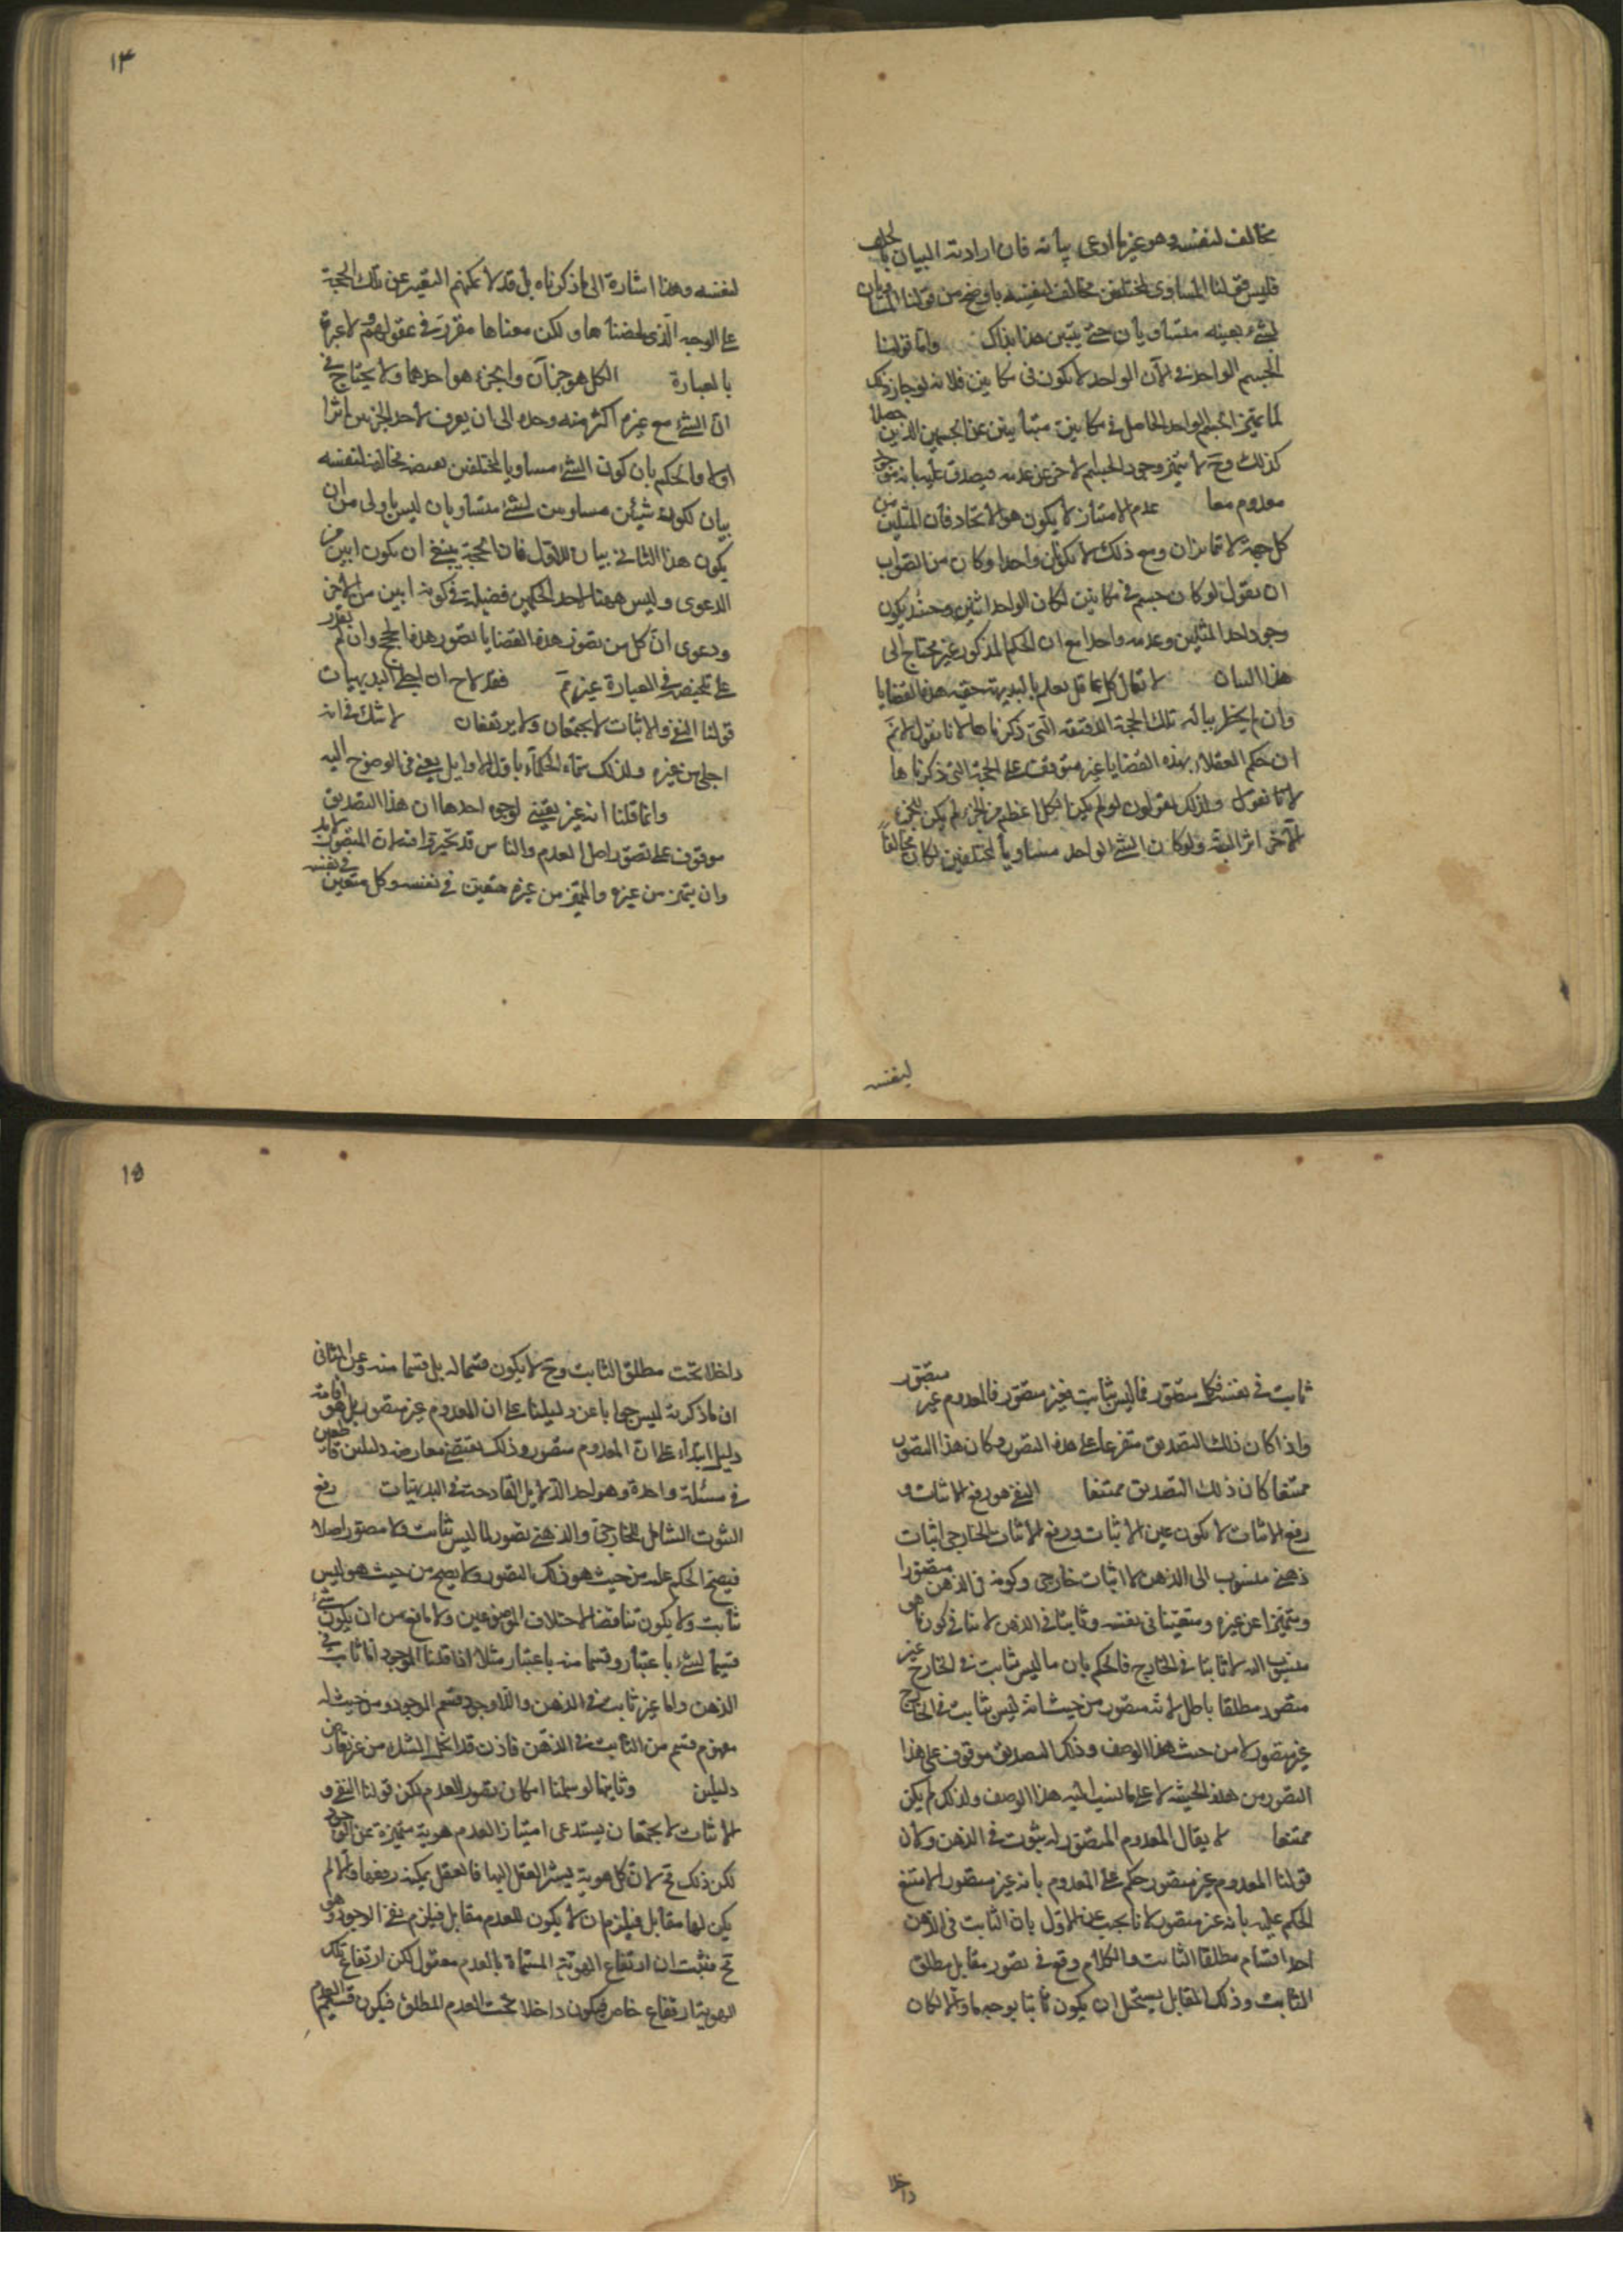 مخالف لنفسه وهو غير ما ادعى بيانه فان ارادته البيان بالخلف
فليس قولنا المساوى لمختلفين مخالف لنفسه باوضح من قولنا المساويان
لشئ بعينه متساويان حتى يتبين هذا بذاك واما قولنا
الجسم الواحد فى الآن الواحد لا يكون فى مكانين فلانه لو جاز ذلك
لما تميز الجسم الواحد الحاصل فى مكانين متباينين عن الجسمين الذين حصلا
كذلك وح لا يتميز وجود الجسم الاخر عن عدمه فيصدق عليه انه موجود
معدوم معا عدم الامتياز لا يكون هو الاتحاد فان المثلين من
كل جهة لا تمايزان ومع ذلك لا يكونان واحدا وكان من الصواب
ان يقول لو كان جسم فى مكانين لكان الواحد اثنين وحينئذ يكون
وجود احد المثلين وعدمه واحدا مع ان الحكم المذكور غير محتاج الى
هذا البيان لا يقال كل عاقل يعلم بالبديهة حقية هذه القضايا
وان لم يخطر بباله تلك الحجة الدقيقة التى ذكرناها لانا نقول لانم
ان حكم العقلاء بهذه القضايا غير متوقف على الحجة التى ذكرناها
لانا نقول ولذلك يقولون لو لم يكن الكل اعظم من الجزء لم يكن للجزء
الآخر اثر البتة ولو كان الشئ الواحد مساويا لمختلفين لكان مخالفا
لنفسه
١٣
لنفسه وهذا اشارة الى ما ذكرناه بل قد لا يمكنهم التعبير عن تلك الحجة
على الوجه الذى لخصناها ولكن معناها مقرر فى عقولهم ولا عبرة
بالعبارة الكل هو جزآن والجزء هو احدهما ولا يحتاج فى
ان الشئ مع غيره اكثر منه وحده الى ان يعرف لاحد الجزءين اثرا
اولا واما الحكم بان كون الشئ مساويا لمختلفين بعينه مخالف لنفسه
بيان لكون شيئين مساويين لشئ متساويان ليس باولى من ان
يكون هذا الثانى بيان للاول فان الحجة ينبغى ان يكون ابين من
الدعوى وليس ههنا لاحد الحكمين فضيلة فى كونه ابين من الآخر
ودعوى ان كل من تصور هذه القضايا تصور هذه الحجج وان لم يقدر
على تلخيص فى العبارة غير تم فقد لاح ان اجلى البديهيات
قولنا النفى والاثبات لا يجتمعان ولا يرتفعان لا شك فى انه
اجلى من غيره ولذلك سماه الحكماء باول الاوايل يعنى فى الوضوح اليه
وانما قلنا انه غير يقينى لوجوه احدها ان هذا التصديق
موقوف على تصور اصل العدم والناس قد تحيروا فيه لان المتصور لابد
وان يتميز من غيره والمتميز من غيره متعين فى نفسه وكل متعين فى نفسه
ثابت فى نفسه فكل متصور فما ليس بثابت فغير متصور فالمعدوم غير متصور
واذا كان ذلك التصديق متفرعا على هذه التصور وكان هذا التصور
ممتنعا كان ذلك التصديق ممتنعا النفى هو رفع الاثبات و
رفع الاثبات لا يكون عين الاثبات ورفع الاثبات الخارجى اثبات
ذهنى منسوب الى الذهن لا اثبات خارجى وكونه فى الذهن متصورا
ومتميزا عن غيره ومتعينا فى نفسه وثابتا فى الذهن لا ينافى كون ما هو
منسوب اليه لا ثابتا فى الخارج فالحكم بان ما ليس بثابت فى الخارج غير
متصور مطلقا باطل لانه متصور من حيث انه ليس بثابت فى الخارج
غير متصور لا من حيث هذا الوصف وذلك التصديق موقوف على هذا
التصور من هذه الحيثية لا على ما نسب اليه هذا الوصف ولذلك لم يكن
ممتنعا لا يقال المعدوم المتصور له ثبوت فى الذهن ولان
قولنا المعدوم غير متصور حكم على المعدوم بانه غير متصور لامتنع
الحكم عليه بانه غير متصور لانا نجيب عن الاول بان الثابت فى الذهن
احد اقسام مطلق الثابت والكلام وقع فى تصور مقابل مطلق
الثابت وذلك المقابل يستحيل ان يكون ثابتا بوجه ما والا لكان
داخلا
١٥
داخلا تحت مطلق الثابت وح لا يكون قسيما له بل قسما منه وعن الثانى
ان ما ذكرته ليس جوابا عن دليلنا على ان المعدوم غير متصور بل هو اقامة
دليل ابتداء على ان المعدوم متصور وذلك يقتضى معارضة دليلين قاطعين
فى مسئلة واحدة وهو احد الدلايل القادحة فى البديهيات رفع
الثبوت الشامل للخارجى والذهنى تصور لما ليس بثابت ولا متصور اصلا
فيصح الحكم عليه من حيث هو ذلك التصور ولا يصح من حيث هو ليس
بثابت ولا يكون تناقضا لاختلاف الموضوعين ولا مانع من ان يكون شئ
قسيما لشئ باعتبار وقسما منه باعتبار مثلا اذا قلنا الموجود اما ثابت فى
الذهن واما غير ثابت فى الذهن واللاموجود قسيم الموجود ومن حيث انه
مفهوم قسم من الثابت فى الذهن فاذن قد انحل الشك من غير تعارض
دليلين وثانيها لو سلمنا امكان تصور العدم لكن قولنا النفى و
الاثبات لا يجتمعان يستدعى امتياز العدم هوية متميزة عن الوجود
لكن ذلك مح لان كل هوية يشير العقل اليها فالعقل يمكنه رفعها والا لم
يكن لها مقابل فيلزم ان لا يكون للعدم مقابل فيلزم نفى الوجود وهو
مح فثبت ان ارتفاع الهوية المسماة بالعدم معقول لكن ارتفاع تلك
الهوية ارتفاع خاص فيكون داخلا تحت العدم المطلق فيكون قسيم العدم